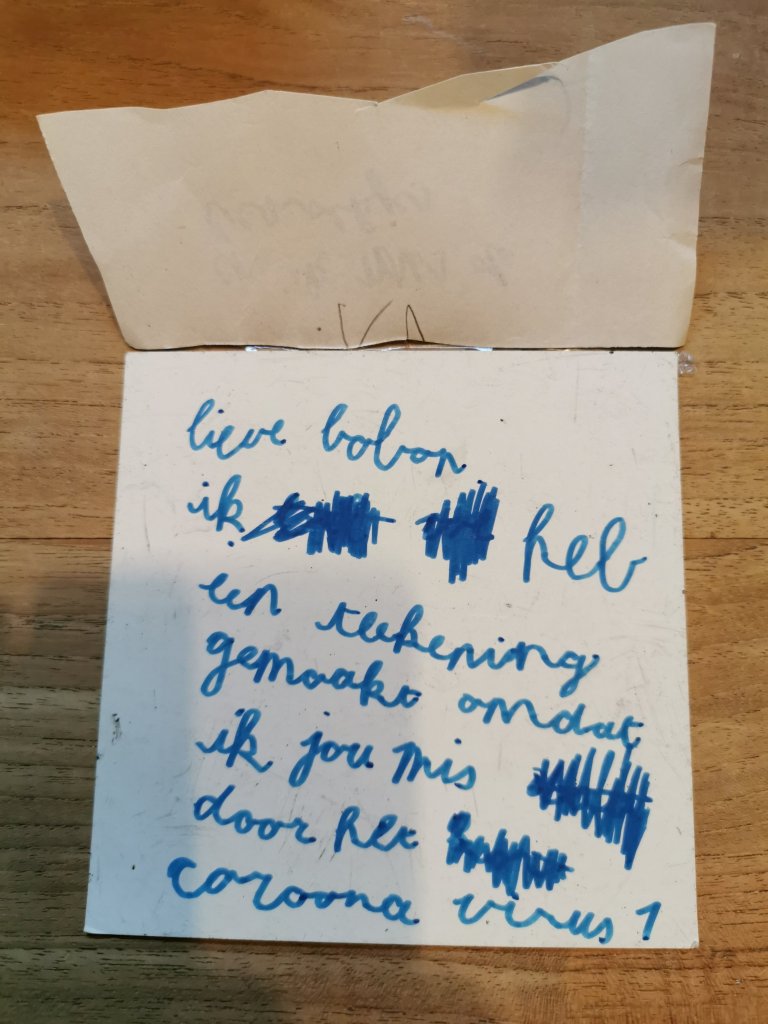 lieve bobon
ik heb
een teekening
gemaakt omdat
ik jou mis
door het
coroona virus 1